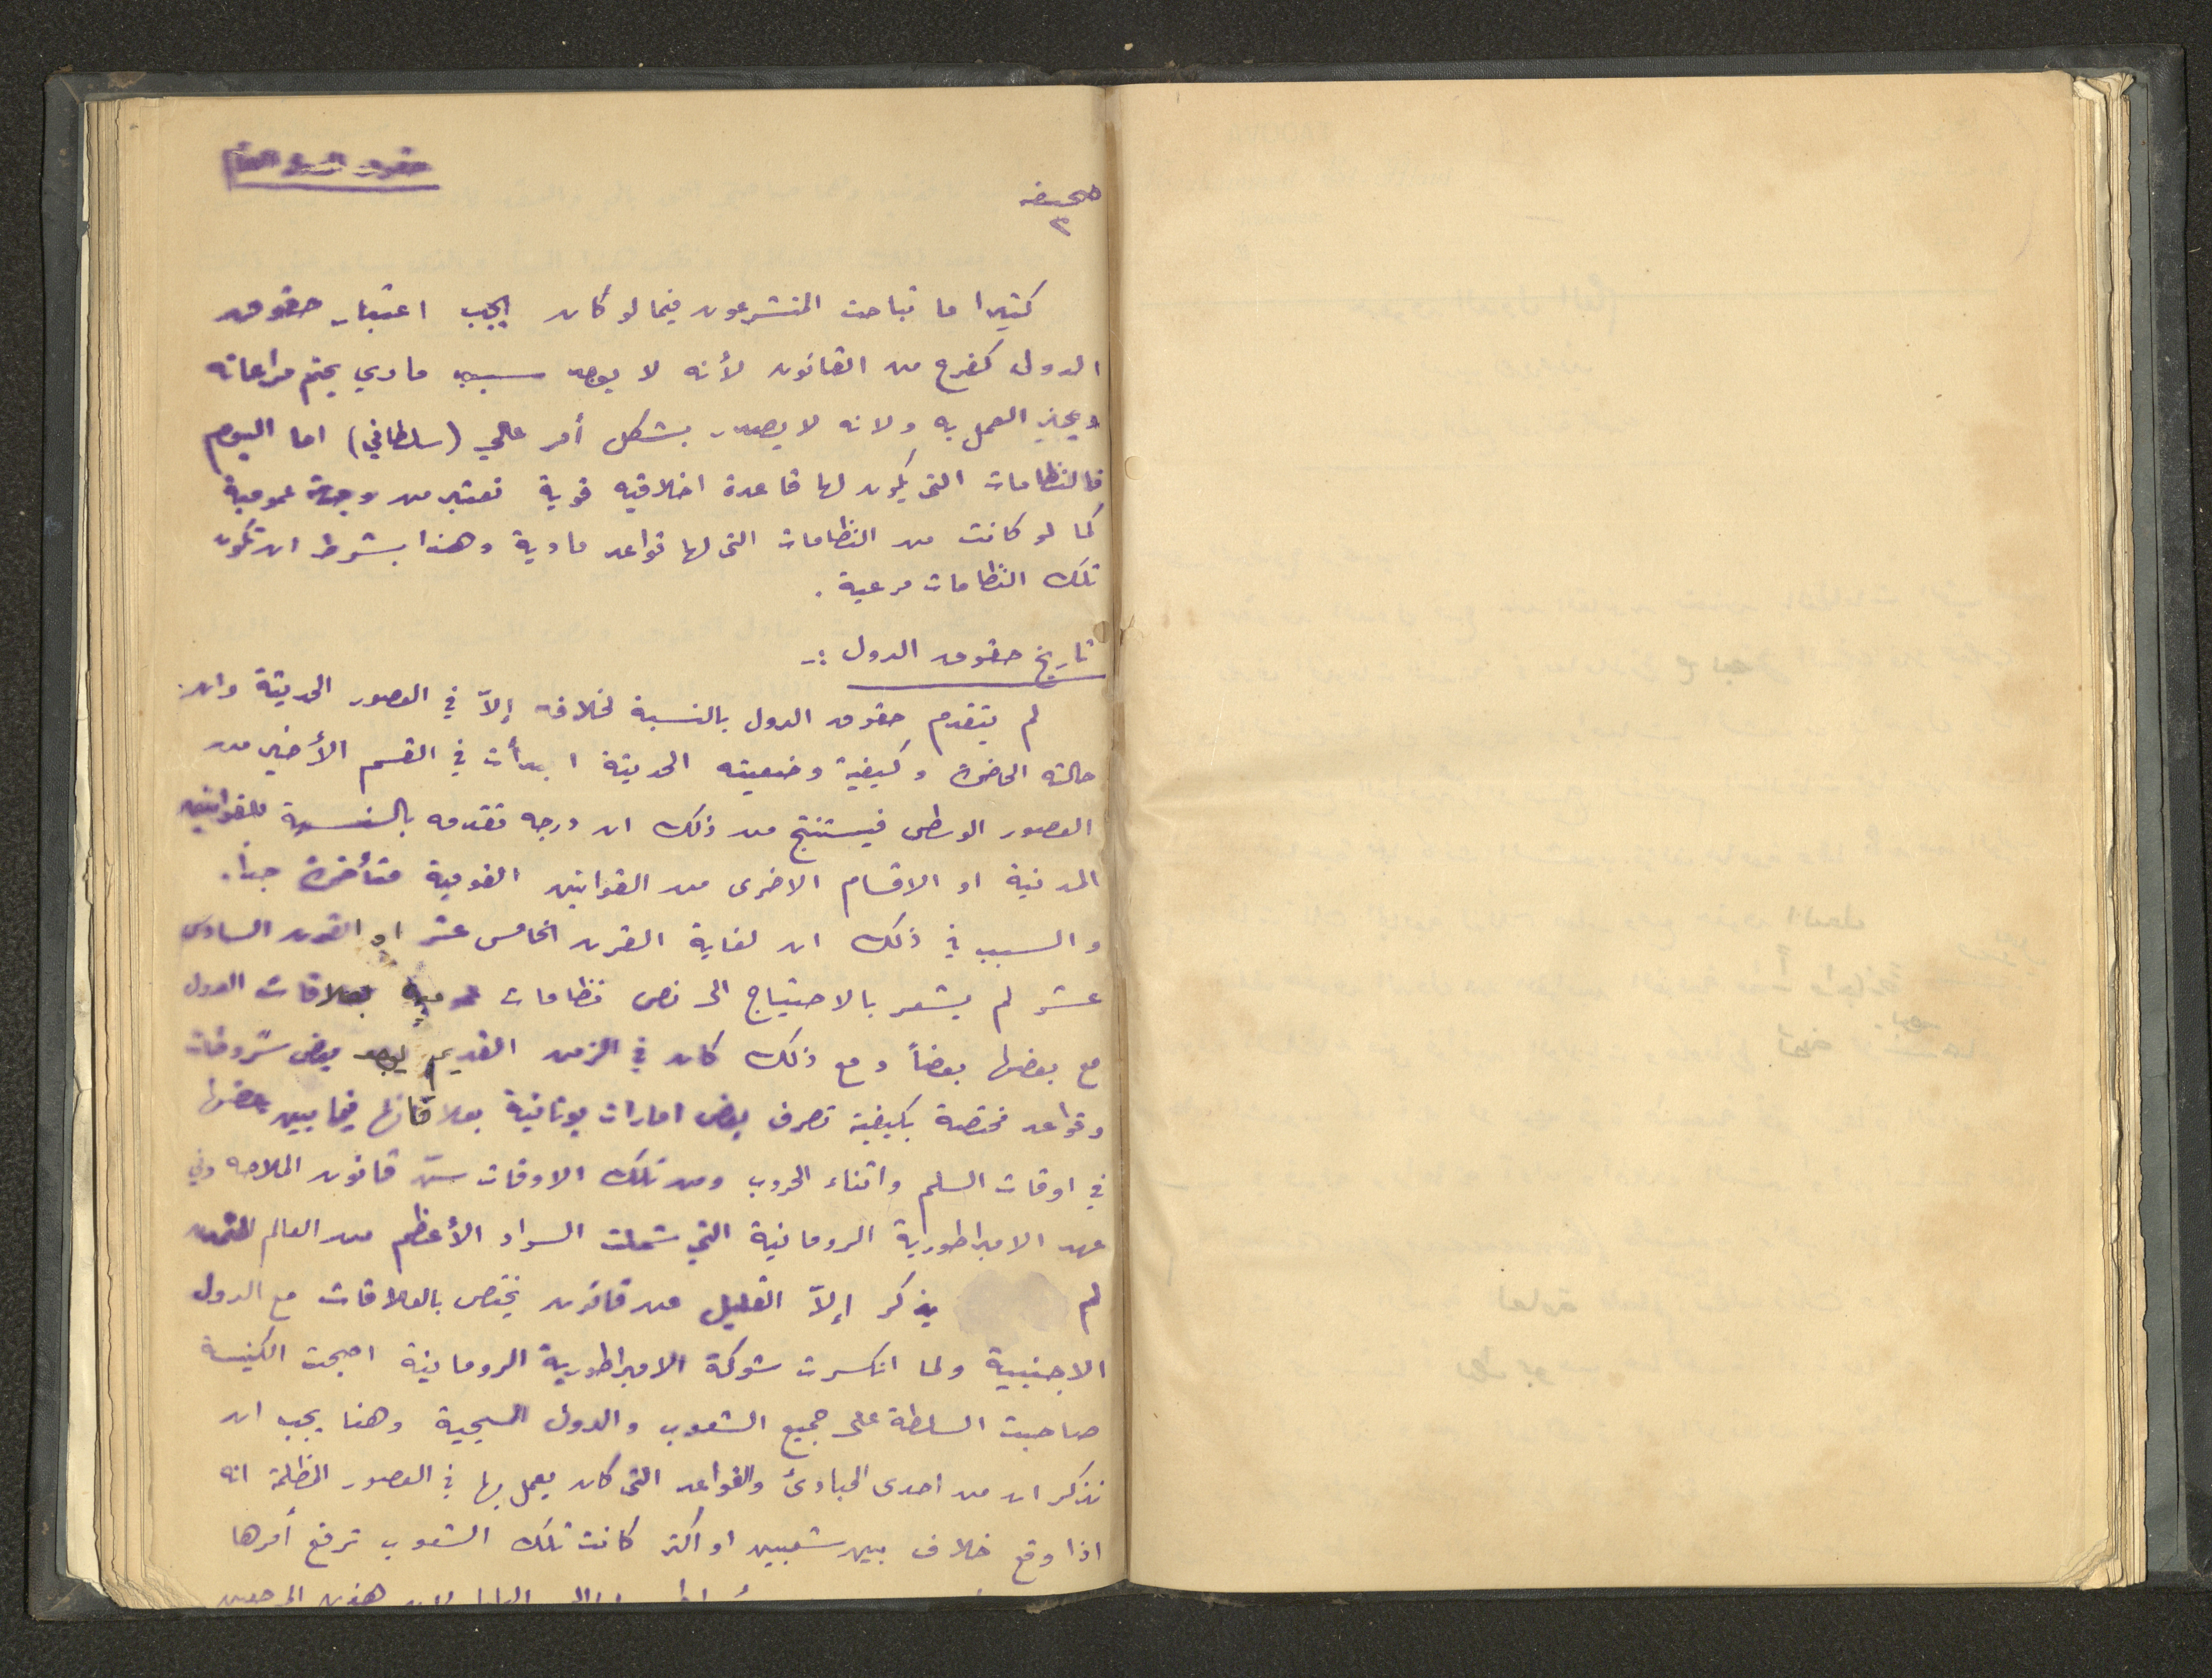 حقوق الدول العام
صحيفة
٣
كثيرا ما تباحث المتشرعون فيما لو كان يجب اعتبار حقوق
الدول كفرع من القانون لأنه لا يوجد سبب مادي يحتم مراعاته
ويجبر العمل به ولانه لا يصدر بشكل أمر عالي (سلطاني) اما اليوم
فالنظامات التي يكون لها قاعدة اخلاقيه قوية تعتبر من وجهة عمومية
كما لو كانت من النظامات التي لها قواعد مادية وهذا بشرط ان تكون
تلك النظامات مرعية .
تاريخ حقوق الدول :-
لم يتقدم حقوق الدول بالنسبة لخلافه إلاّ في العصور الحديثة وان
حالته الحاضرة وكيفية وضعيته الحديثة ابدأت في القسم الأخير من
العصور الوسطى فيستنتج من ذلك ان درجه تقدمه بالنسبة للقوانين
المدنية او الاقسام الاخرى من القوانين القومية متأخرة جداً.
والسبب في ذلك ان لغاية القرن الخامس عشر او القرن السادس
عشر لم يشعر بالاحتياج الى نص نظامات عمومية بعلاقات الدول
مع بعضها بعضاً ومع ذلك كان في الزمن القديم يوجد بعض شروحات
وقواعد مختصة بكيفية تصرف بعض امارات يونانية بعلاقاتها فيما بين بعضها
في اوقات السلم واثناء الحروب ومن تلك الاوقات سنّ قانون الملاحه وفي
عهد الامبراطورية الرومانية التي شملت السواد الأعظم من العالم المتمدن
لم يذكر إلاّ القليل من قانون يختص بالعلاقات مع الدول
الاجنبية ولما انكسرت شوكة الامبراطورية الرومانية اصبحت الكنيسة
صاحبت السلطة على جميع الشعوب والدول المسيحية وهنا يجب ان
نذكر ان من احدى المبادئ والقواعد التي كان يعمل بها في العصور المظلمة انه
اذا وقع خلاف بين شعبين او اكثر كانت تلك الشعوب ترفع أمرها